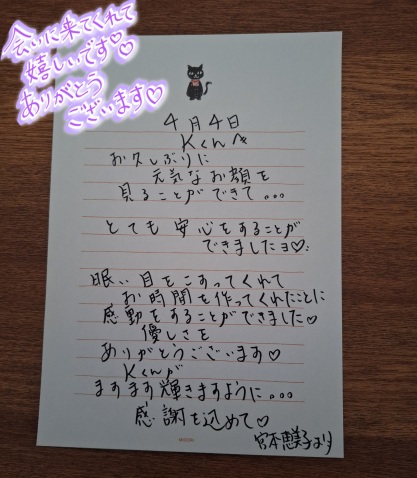 会いに来てくれて
嬉しいです♡♡
ありがとう
ございます♡
4月4日
Kくんへ
お久しぶりに
元気なお顔を
見ることができて...
とても安心をすることが
できましたヨ♡
眠い目をこすってくれて
お時間を作ってくれたことに
感動をすることができました♡
優しさを
ありがとうございます♡
Kくんが
ますます輝きますように...
感謝を込めて♡
宮本恵美子より